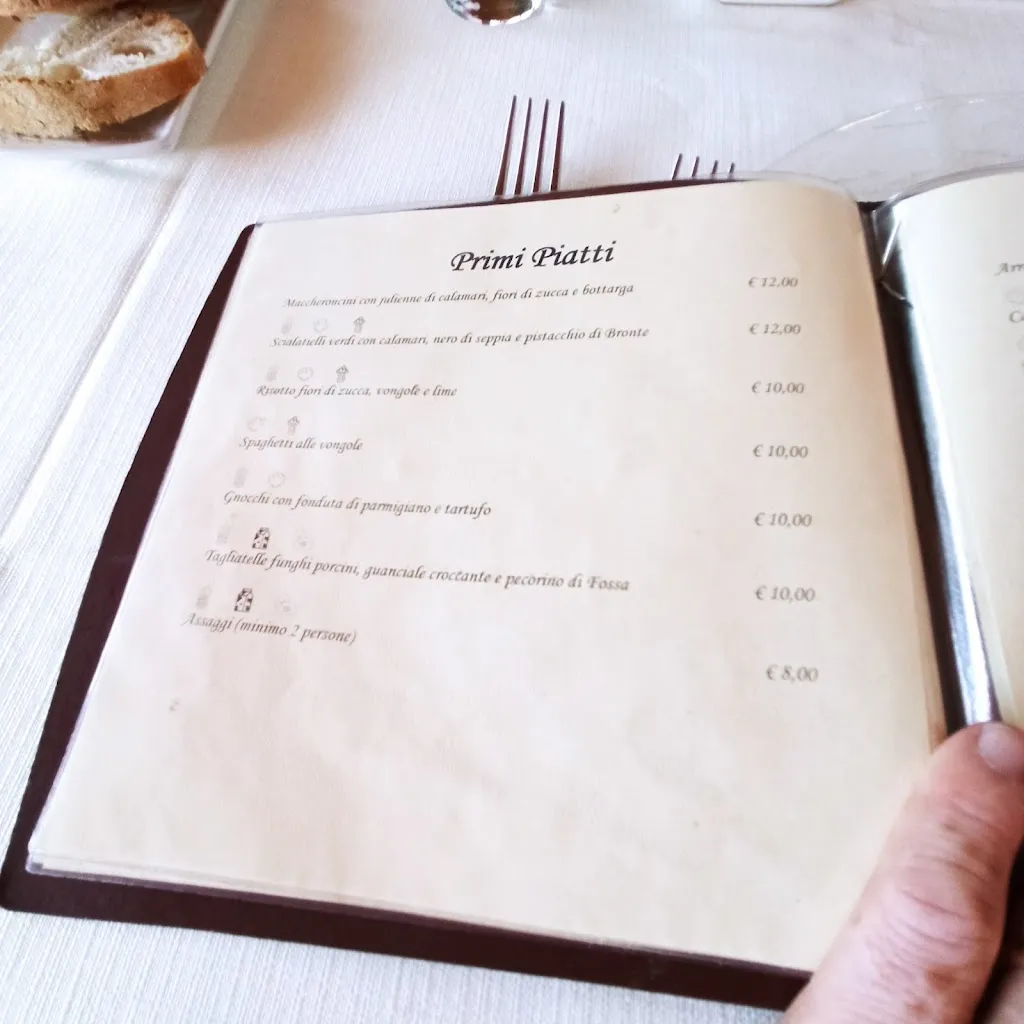 Primi Piatti
Maccheroncini con julienne di calamari, fiori di zucca e bottarga € 12,00
Scialatielli verdi con calamari, nero di seppia e pistacchio di Bronte € 12,00
Risotto fiori di zucca, vongole e lime € 10,00
Spaghetti alle vongole € 10,00
Gnocchi con fonduta di parmigiano e tartufo € 10,00
Tagliatelle funghi porcini, guanciale croccante e pecorino di Fossa € 10,00
Assaggi (minimo 2 persone) € 8,00